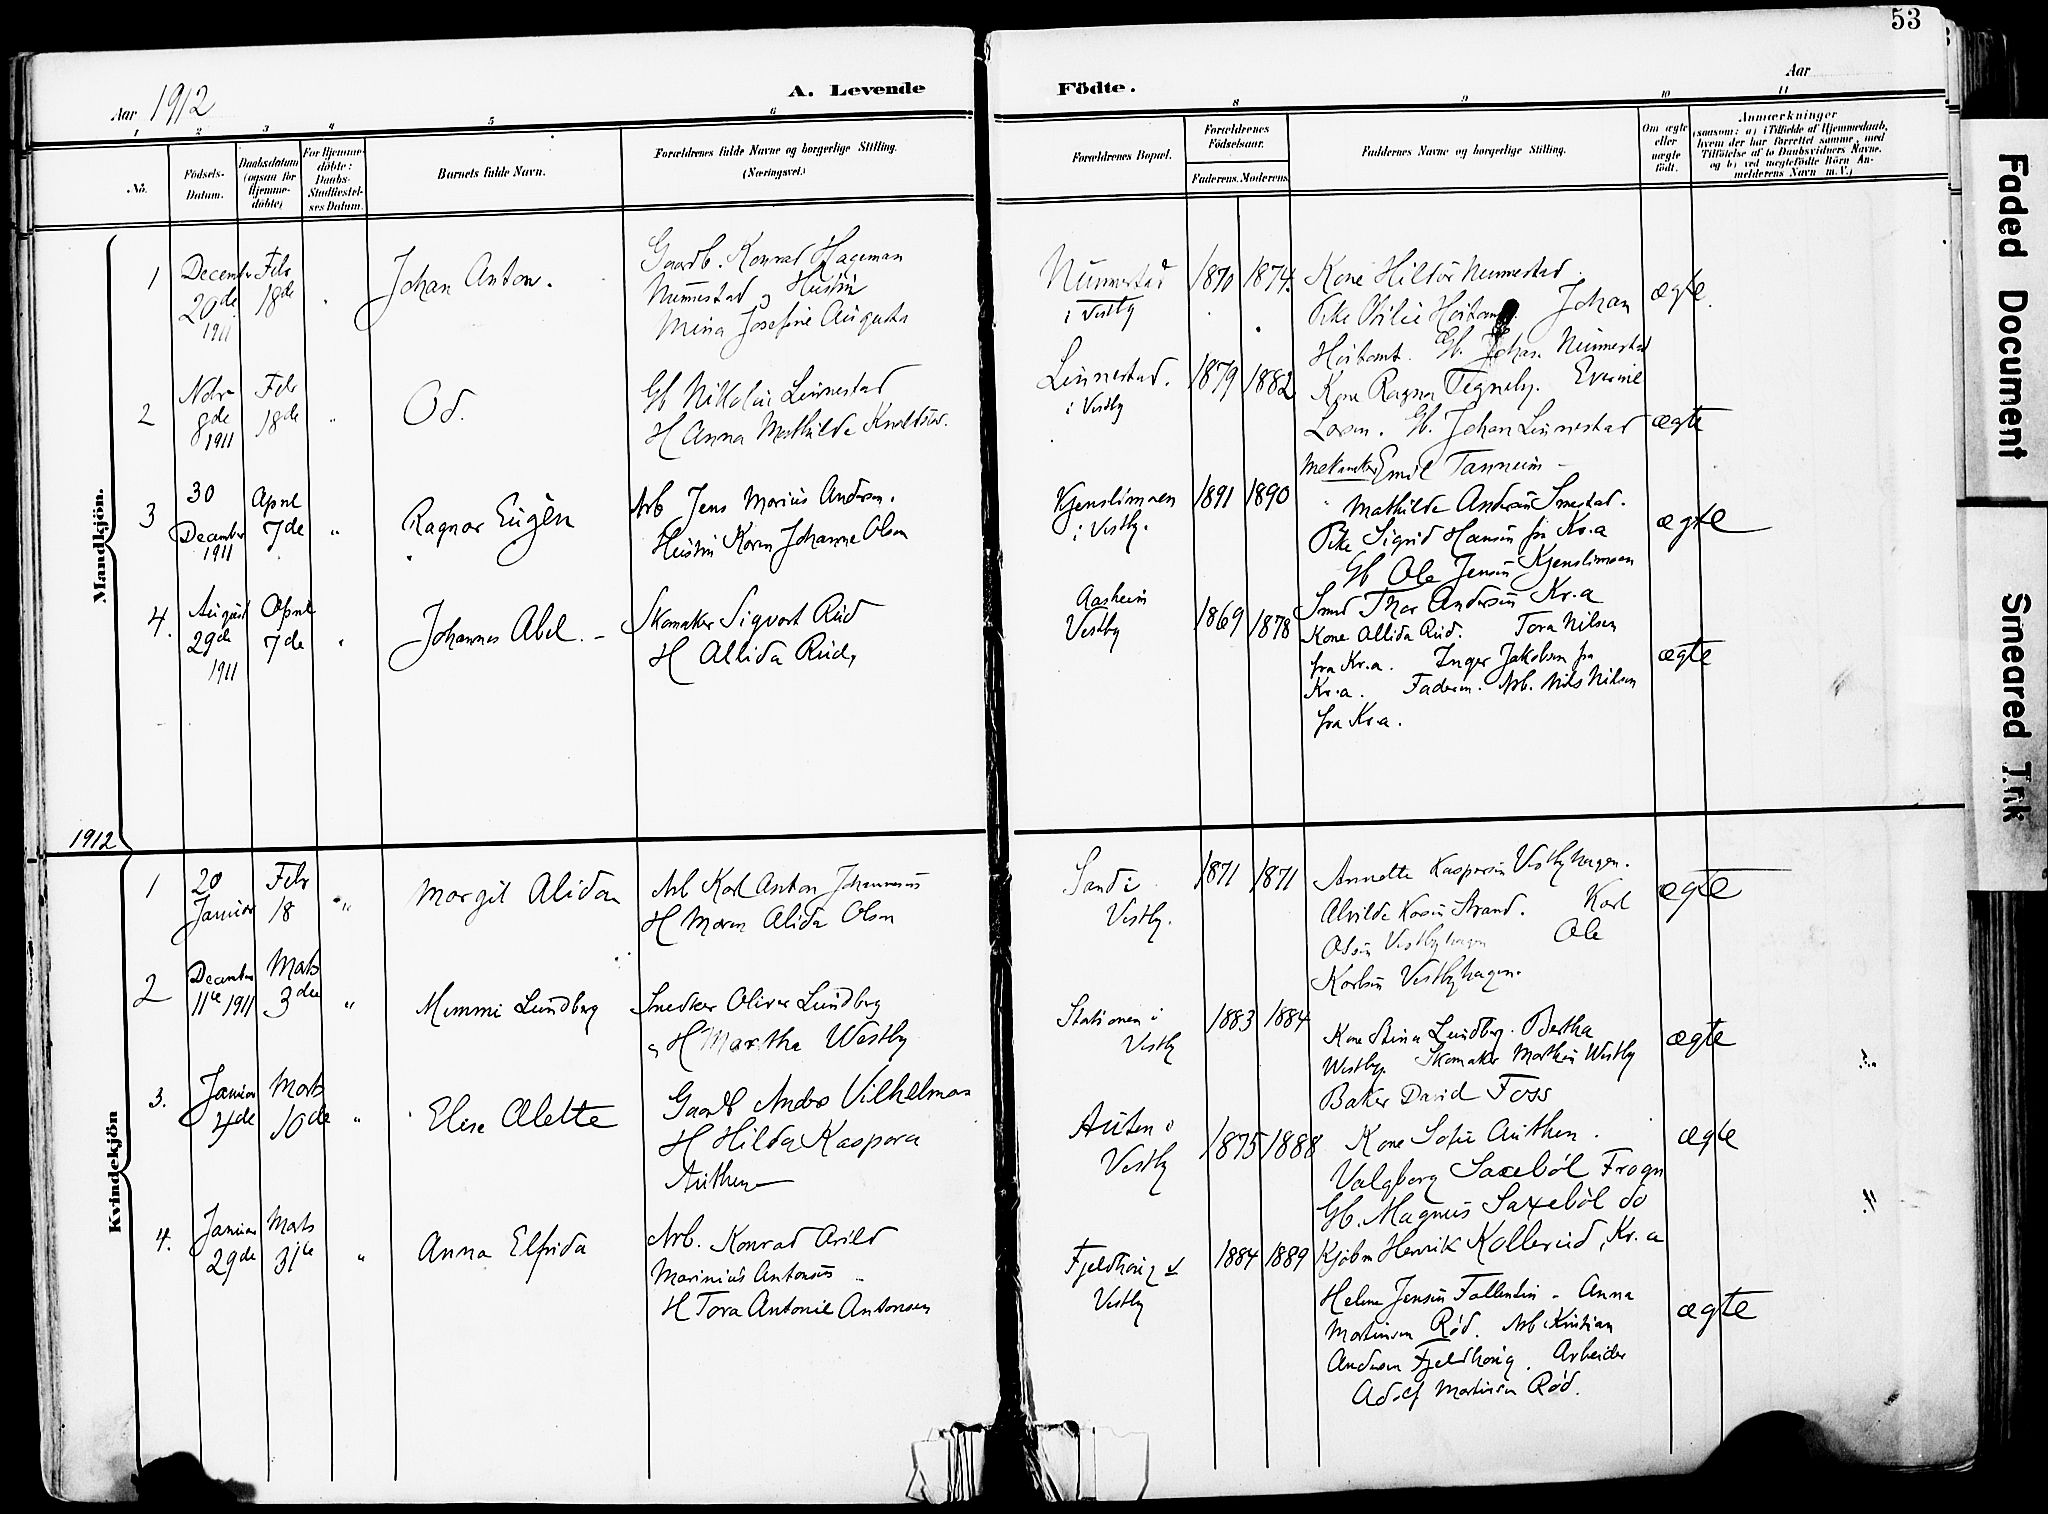 53
Aar 1912
A. Levende Födte.
Aar
1 2 3 4 5 6 8 9 10 11
No.
Födsels-
Datum.
Daabsdatum
(ogsaa for
Hjemme-
döbte)
For Hjemme-
döbte:
Daabs-
Stadfæstel-
ses Datum.
Barnets fulde Navn.
Forældrenes fulde Navne og borgerlige Stilling.
(Næringsvei.)
Forældrenes Bopæl.
Forældrenes
Födselsaar.
Faderens. Moderens.
Faddernes Navne og borgerlige Stilling.
Om ægte
eller
uægte
födt.
Anmærkninger
(saasom: a) i Tilfælde af Hjemmedaab,
hvem der har forrettet samme, med
Tilföielse af to Daabsvidners Navne,
og b) ved uægtefödte Börn An-
melderens Navn m. V.)
Mandkjön.
1
December
20de
1911
Febr
18de
"
Johan Anton.
Gaardb. Konrad Hageman
Nunnestad og Hustru
Mina Josefine Augusta
Nunnestad
i Vestby
1870 1874.
Kone Hilda Nunnestad.
Johan
Gb. Johan Nunnestad
ægte.
2
Nobr
8de
1911
Febr
18de
"
Od.
Gb Nikolai Linnestad
H Anna Mathilde Knudsen.
Linnestad.
i Vestby
1879 1882
Kone Ragna Tegneby.
Gb. Johan Linnestad
Emil
ægte
3
30
December
1911
April
7de
"
Ragnar Eugèn
Arb Jens Marius Andersen.
Hustru Karen Johanne Olsen
Kjenslimoen
i Vestby.
1891 1890
" Mathilde Andersen Smestad.
Pike Sigrid Hansen fra Kr.a
Gb Ole Jensen Kjenslimoen
ægte
4.
August
29de
1911
April
7de
"
Johannes Abel. –
Skomaker Sigvart Rud
H Allida Rud,
Aasheim
Vestby
1869 1878
Smed Thor Andersen Kr.a
Kone Allida Rud. Tora Nilsen
fra Kr.a. Inger Jakobsen fra
Kr.a. Faderen. Arb. Nils Nilsen
fra Kr.a.
ægte
1912
Kvindekjön
1
20
Januar
Febr
18
"
Margit Alida
Arb Karl Anton Johannesen
H Maren Alida Olsen
Sand i
Vestby.
1871 1871
Annette Kaspersen Vestbyhagen.
Alvilde Karin Strand. Karl
Olsen Vestbyhagen Ole
Karlsen Vestbyhagen.
ægte
2
December
11te 1911
Marts
3die
"
Mimmi Lundberg
Snedker Oliver Lundberg
og H Martha Westby
Stationen i
Vestby
1883 1884
Kone Stina Lundberg. Bertha
Westby. Skomaker Martin Westby
Baker David Foss
ægte
3.
Januar
4de
Marts
10de
"
Elise Alette
Gaardb Andro Vilhelmsen
H Hilda Kaspara
Authen
Auten i
Vestby
1875 1888
Kone Sofie Authen.
Valgborg Saxeböl Frogn
Gb. Magnus Saxeböl do
Kjöbm Henrik Kollerud, Kr.a
ægte
4.
Januar
29de
Marts
31te
"
Anna Elfrida
Arb. Konrad Arild
Marinius Antonsen
H Tora Antonie Antonsen
Fjeldhoug
Vestby
1884 1889
Helene Jensen Follentin – Anna
Martinsen Rød. Arb Kristian
Andersen Fjeldhoug. Arbeider
Adolf Martinsen Rød.
ægte
Faded Document
Smeared Ink